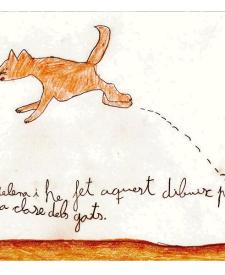 elena i he fet aquest dibuix p
a clase dels gats.